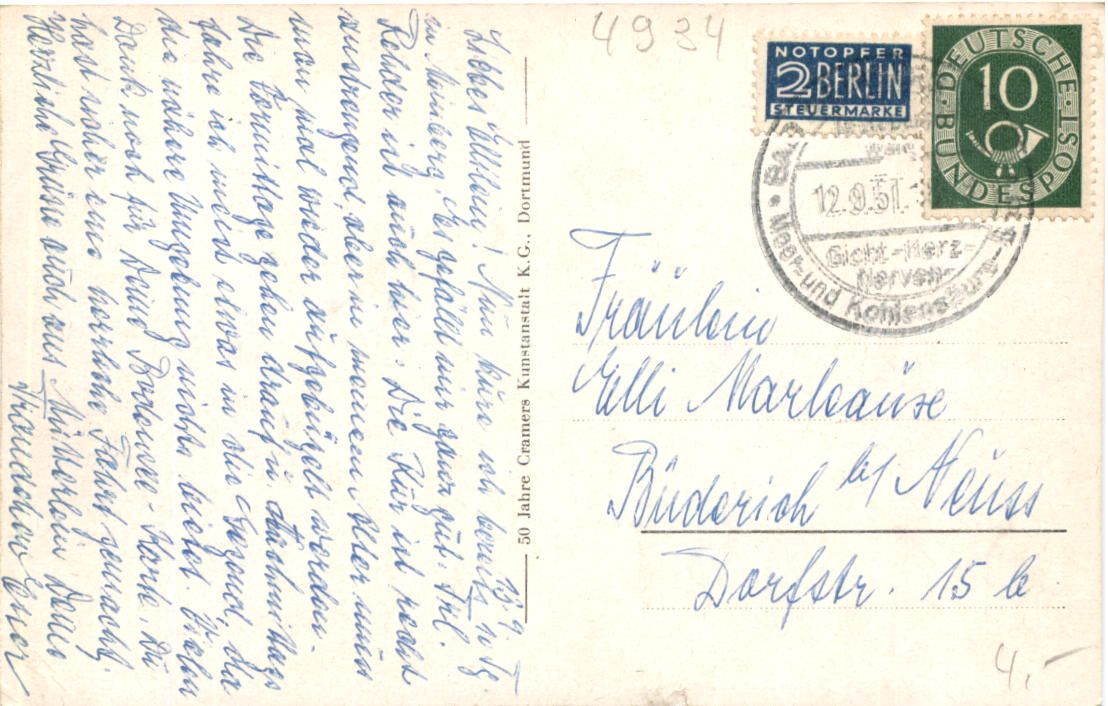 4934
NOTOPFER
2 BERLIN
STEUERMARKE
DEUTSCHE BUNDESPOST
10
12.9.51.
Gicht-Herz-
Nerven-
Moor- und Kohlensäure-
13.9.
Nun küre ich bereits 10 Tg
in Meinberg. Es gefällt mir ganz gut. Frl.
Redder ist auch hier. Die Kur ist recht
anstrengend, aber in meinem Alter muss
man mal wieder aufgebügelt werden.
Die Vormittage gehen drauf u. Nachmittags
fahre ich meist etwas in die Gegend, da
die nähere Umgebung nichts bietet. Vielen
Dank noch für Deine Bodensee-Karte. Du
hast sicher eine herrliche Fahrt gemacht.
Herzliche Grüsse auch ans Mütterlein Deine
50 Jahre Cramers Kunstanstalt K.G., Dortmund
Fräulein
Elli Markause
Büderich b/ Neuss
Dorfstr. 15 b
4,-